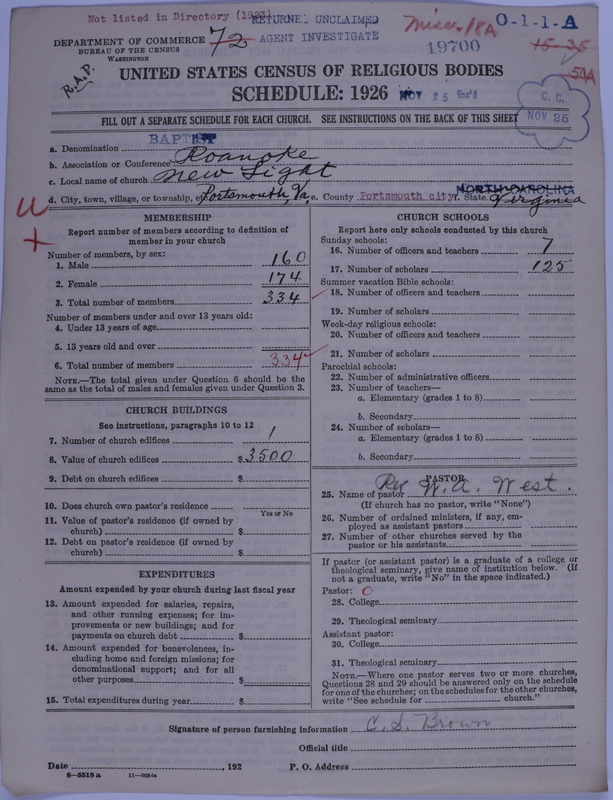 Not listed in Directory (1923)
RETURNED UNCLAIMED
AGENT INVESTIGATE
72
Misc 18A
O-1-1-A
19700
15-35
54A
DEPARTMENT OF COMMERCE
BUREAU OF THE CENSUS
WASHINGTON
R.A.P.
UNITED STATES CENSUS OF RELIGIOUS BODIES
SCHEDULE: 1926
NOV 25 Rec'd
C. C.
NOV 25
FILL OUT A SEPARATE SCHEDULE FOR EACH CHURCH. SEE INSTRUCTIONS ON THE BACK OF THIS SHEET
a. Denomination BAPTIST
b. Association or Conference Roanoke
c. Local name of church New Light
d. City, town, village, or township, etc. Portsmouth, Va. e. County Portsmouth city f. State NORTH CAROLINA Virginia
MEMBERSHIP
Report number of members according to definition of
member in your church
Number of members, by sex:
1. Male 160
2. Female 174
3. Total number of members 334
Number of members under and over 13 years old:
4. Under 13 years of age
5. 13 years old and over
6. Total number of members 334
NOTE.—The total given under Question 6 should be the
same as the total of males and females given under Question 3.
CHURCH BUILDINGS
See instructions, paragraphs 10 to 12
7. Number of church edifices 1
8. Value of church edifices $ 3500
9. Debt on church edifices $
10. Does church own pastor's residence
Yes or No
11. Value of pastor's residence (if owned by
church) $
12. Debt on pastor's residence (if owned by
church) $
EXPENDITURES
Amount expended by your church during last fiscal year
13. Amount expended for salaries, repairs,
and other running expenses; for im-
provements or new buildings; and for
payments on church debt $
14. Amount expended for benevolences, in-
cluding home and foreign missions; for
denominational support; and for all
other purposes $
15. Total expenditures during year $
CHURCH SCHOOLS
Report here only schools conducted by this church
Sunday schools:
16. Number of officers and teachers 7
17. Number of scholars 125
Summer vacation Bible schools:
18. Number of officers and teachers
19. Number of scholars
Week-day religious schools:
20. Number of officers and teachers
21. Number of scholars
Parochial schools:
22. Number of administrative officers
23. Number of teachers—
a. Elementary (grades 1 to 8)
b. Secondary
24. Number of scholars—
a. Elementary (grades 1 to 8)
b. Secondary
PASTOR
25. Name of pastor Rev W. A. West.
(If church has no pastor, write "None")
26. Number of ordained ministers, if any, em-
ployed as assistant pastors
27. Number of other churches served by the
pastor or his assistants
If pastor (or assistant pastor) is a graduate of a college or
theological seminary, give name of institution below. (If
not a graduate, write "No" in the space indicated.)
Pastor: O
28. College
29. Theological seminary
Assistant pastor:
30. College
31. Theological seminary
NOTE.—Where one pastor serves two or more churches,
Questions 28 and 29 should be answered only on the schedule
for one of the churches; on the schedules for the other churches,
write "See schedule for church."
Signature of person furnishing information C. S. Brown
Official title
Date , 192 P. O. Address
8—5518 a 11—9084a